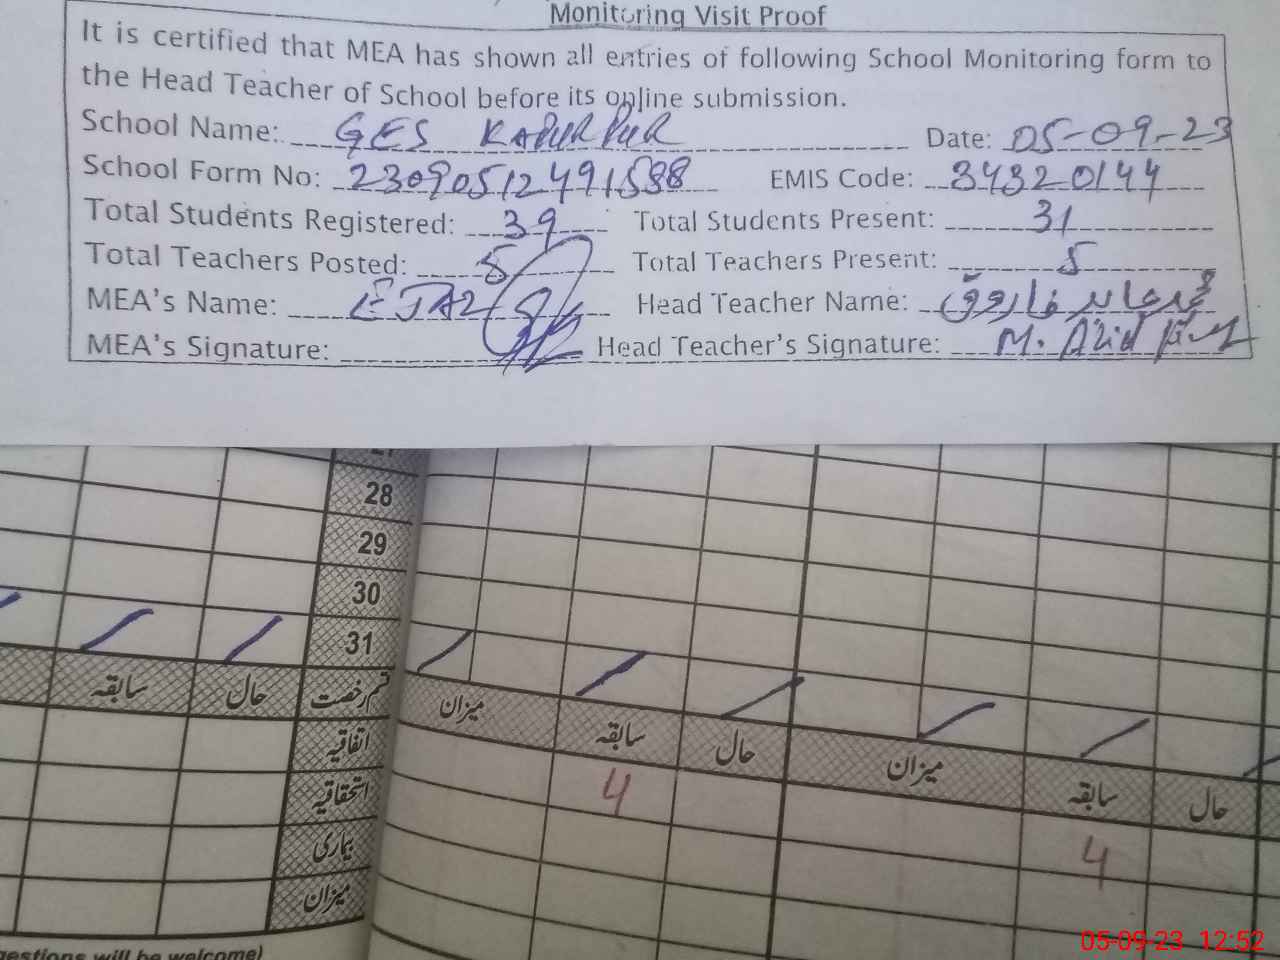 Monitoring Visit Proof
It is certified that MEA has shown all entries of following School Monitoring form to
the Head Teacher of School before its online submission.
School Name: GES KAPURPUR Date: 05-09-23
School Form No: 23090512491588 EMIS Code: 34320144
Total Students Registered: 39 Total Students Present: 31
Total Teachers Posted: 5 Total Teachers Present: 5
MEA's Name: EJAZ Head Teacher Name: محمد عابد فاروق
MEA's Signature: Head Teacher's Signature: M. Abid
28
29
30
31
سابقہ حال قسم رخصت میزان سابقہ حال میزان سابقہ حال
اتفاقیہ 4 4
استحقاقیہ
بیماری
میزان
gestions will be welcome)
05-09-23 12:52